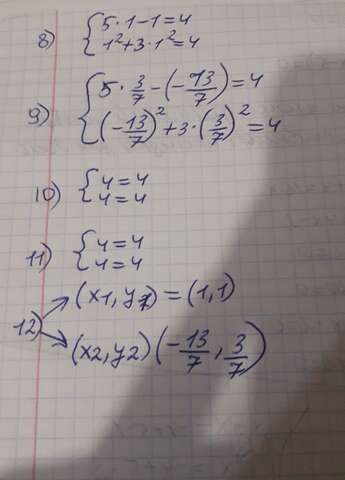 8) { 5 · 1 - 1 = 4
1² + 3 · 1² = 4
9) { 5 · 3/7 - (- 13/7) = 4
(- 13/7)² + 3 · (3/7)² = 4
10) { 4 = 4
4 = 4
11) { 4 = 4
4 = 4
12) (x1, y1) = (1, 1)
(x2, y2) (- 13/7, 3/7)